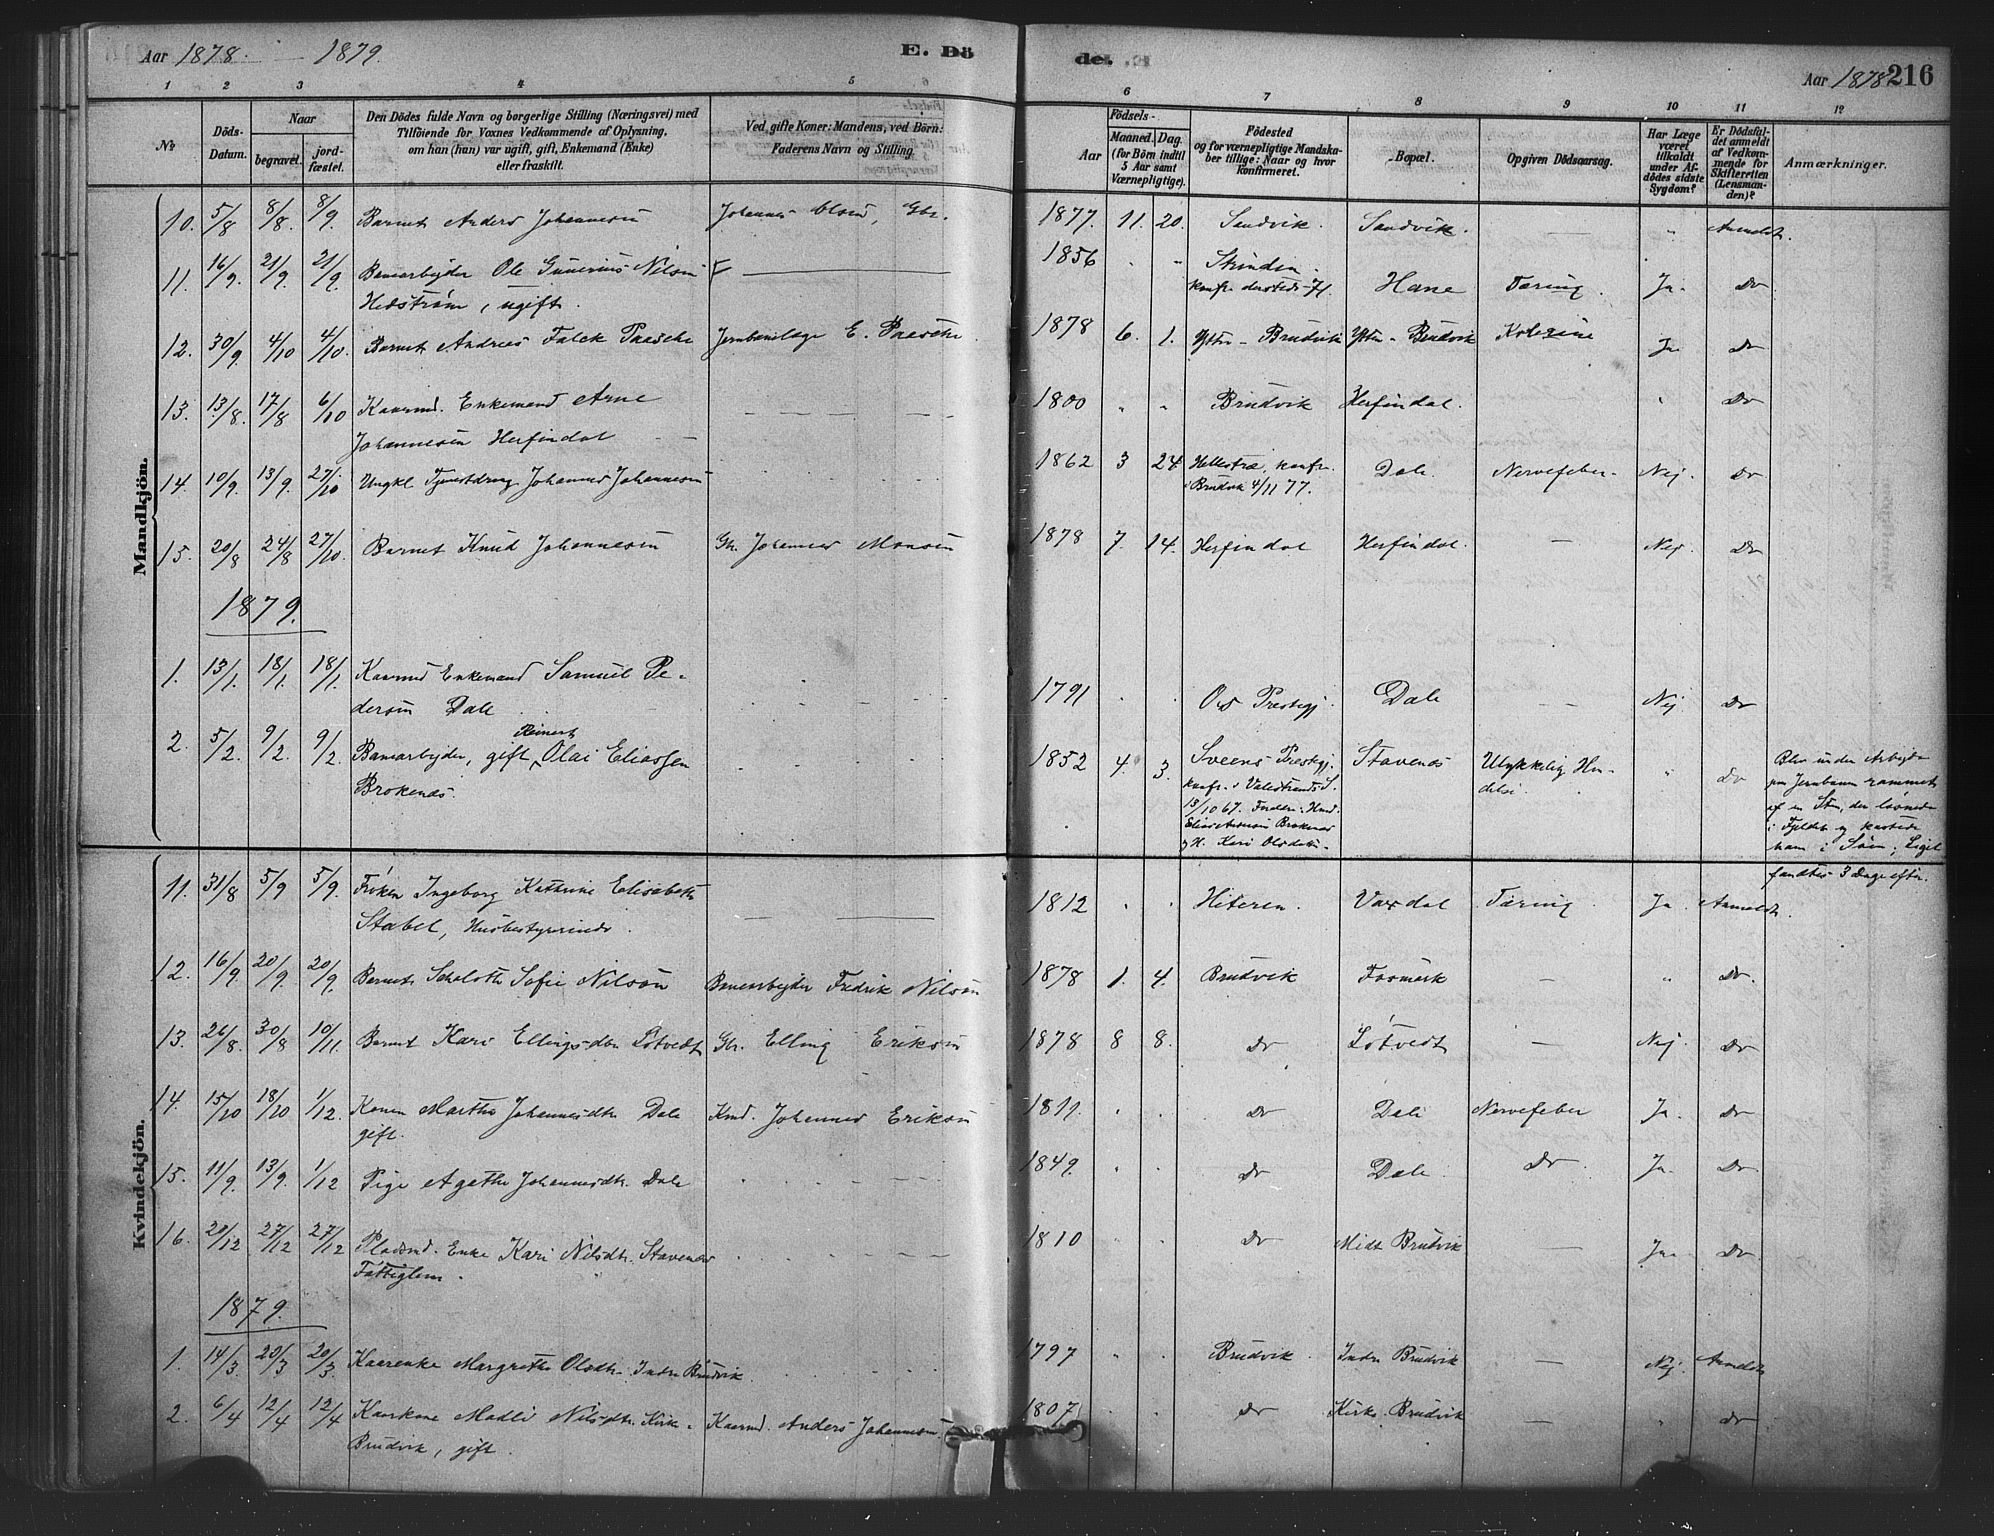 Aar 1878. – 1879. E. Dö
de. Aar 1878 216
1 2 3 4 5 6 7 8 9 10 11 12
No Döds-Datum. Naar begravet. jord-fæstet.
Den Dödes fulde Navn og borgerlige Stilling (Næringsvei) med
Tilföiende for Voxnes Vedkommende af Oplysning,
om han (hun) var ugift, gift, Enkemand (Enke)
eller fraskilt.
Ved gifte Koner: Mandens, ved Börn:
Faderens Navn og Stilling.
Födsels-
Aar Maaned. Dag.
(for Börn indtil
5 Aar samt
Værnepligtige).
Födested
og for værnepligtige Mandska-
ber tillige: Naar og hvor
konfirmeret.
Bopæl.
Opgiven Dödsaarsag.
Har Læge
været
tilkaldt
under Af-
dödes sidste
Sygdom?
Er Dödsfal-
det anmeldt
af Vedkom-
mende for
Skifteretten
(Lensman-
den)?
Anmærkninger.
Mandkjön.
10. 5/8 8/8. 8/9. Barnet Anders Johannesen Johannes Olsen, Gbr. 1877. 11. 20. Sandvik. Sandvik. — " Anmeldt.
11. 16/9. 21/9. 21/9. Banearbejder Ole Gunerius Nilsen 1856 " " Strinden.
Hedstrøm, ugift. konfr. dersteds 71. Hane Tæring. Ja. Do
12. 30/9 4/10 4/10. Barnet Andreas Falck Paasche Jernbanelæge E. Paasche. 1878 6. 1. Ytter-Brudvik Ytter-Brudvik Kolerine Ja Do
13. 13/8. 17/8 6/10 Kaarmd. Enkemand Arne 1800 " " Brudvik Herfindal. " Do
Johannesen Herfindal
14. 10/9. 13/9. 27/10 Ungkl. Tjenestdreng Johannes Johannesen 1862 3 24 Hellestræ, konfr. Dale Nervefeber. Nej. Do
i Brudvik 4/11 77.
15. 20/8 24/8 27/10. Barnet Knud Johannesen Gbr. Johannes Monsen 1878 7. 14. Herfindal Herfindal. — Nej. Do
1879.
1. 13/1. 18/1. 18/1. Kaarmd Enkemand Samuel Pe-
dersen Dale 1791 " " Os Prestegj. Dale — Nej Do
2. 5/2. 9/2. 9/2. Banearbejder, gift, Reinert Olai Eliassen 1852 4. 3. Sveens Prestegj. Stavenæs Ulykkelig Hæn- " Do Blev under Arbejde
Brokenæs. konfr. i Valestrands S. delse. paa Jernbanen rammet
13/10 67. Forældre: Hmd. af en Sten, der løsnede
Elias Anderssen Brokenæs i Fjeldet og kastede
og H. Kari Olsdatter. ham i Søen; Liget
fandtes 3 Dage efter.
Kvindekjön.
11. 31/8 5/9 5/9. Frøken Ingeborg Kathrine Elisabeth 1812 " " Hiteren. Vaxdal Tæring Ja Anmeldt.
Stabel, Husbestyrerinde.
12. 16/9 20/9. 20/9. Barnet Scholoth Sofie Nilsen Banearbejder Fredrik Nilsen 1878 1. 4. Brudvik Fosmark — " Do.
13. 26/8. 30/8 10/11. Barnet Kari Ellingsdtr Løtvedt Gbr. Elling Eriksen 1878 8 8. Do Løtvedt — Nej. Do
14. 15/10 18/10 1/12. Konen Martha Johannesdtr. Dale Kmd. Johannes Eriksen 1811. " " Do Dale Nervefeber Ja. Do
gift.
15. 11/9. 13/9. 1/12 Pige Agathe Johannesdtr. Dale 1849. " " Do Dale Do. Ja. Do
16. 20/12 27/12 27/12 Pladsmd. Enke Kari Nilsdtr. Stavenæs 1810 Do Midt Brudvik — Ja. Do
Fattiglem.
1879.
1. 14/3. 20/3 20/3. Kaarenke Margrethe Olsdtr. Indre Brudvik. 1797 " " Brudvik. Indre Brudvik — Nej. Anmeldt
2. 6/4 12/4 12/4 Kaarkone Madli Nilsdtr. Kirke- Kaarmd. Anders Johannesen. 1807 Do Kirke Brudvik — " Do
Brudvik, gift.